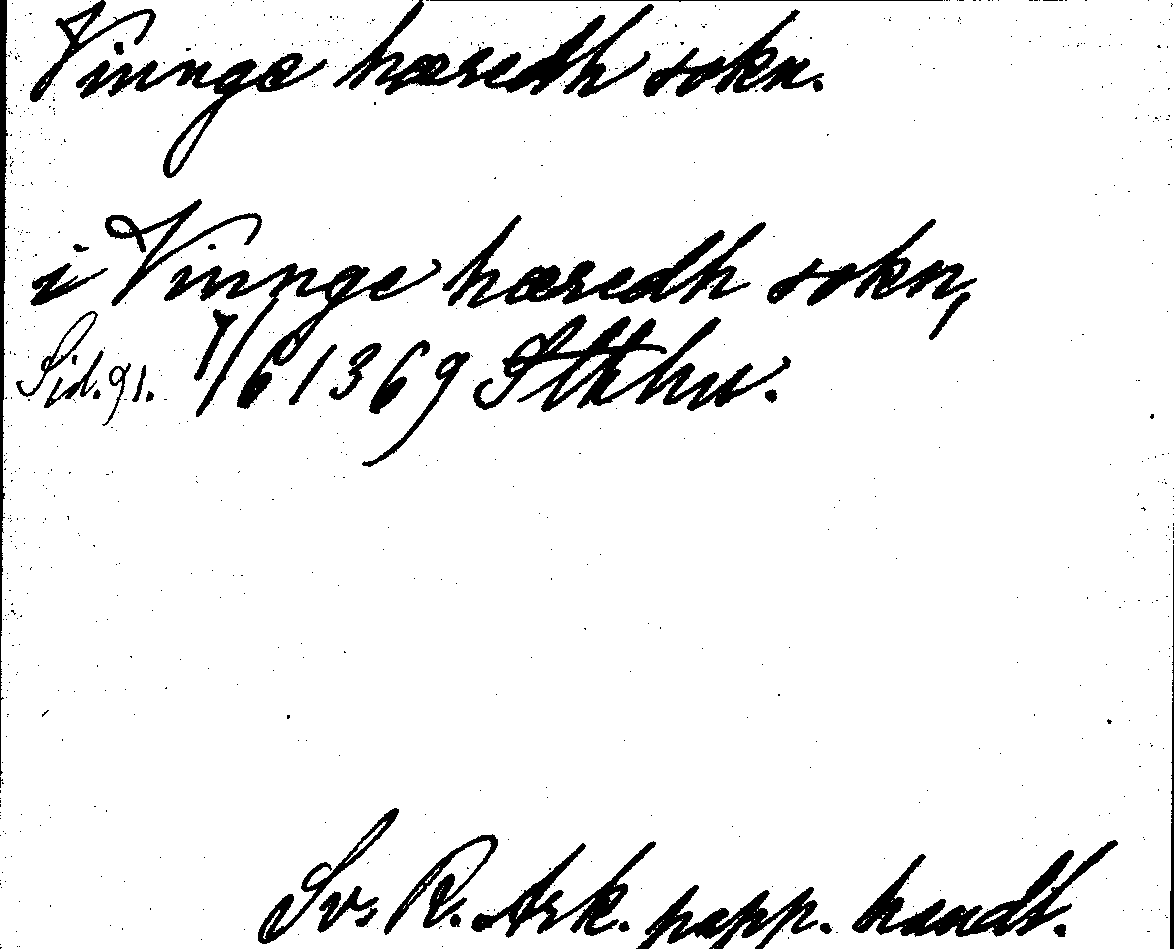 Vinnge hæredh sokn.
i Vinnge hæredh sokn,
Sid. 91. 1/6 1369 Sthlm.
Sv. R. Ark. papp. handl.